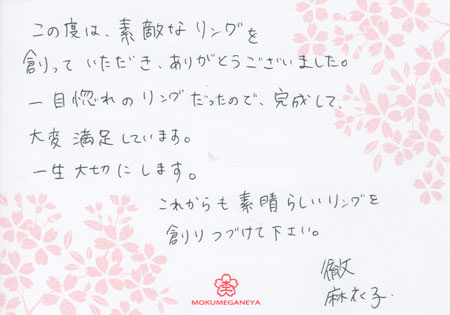 この度は、素敵なリングを
創っていただき、ありがとうございました。
一目惚れのリングだったので、完成して、
大変満足しています。
一生大切にします。
これからも素晴らしいリングを
創りつづけて下さい。
徹
麻衣子.
MOKUMEGANEYA